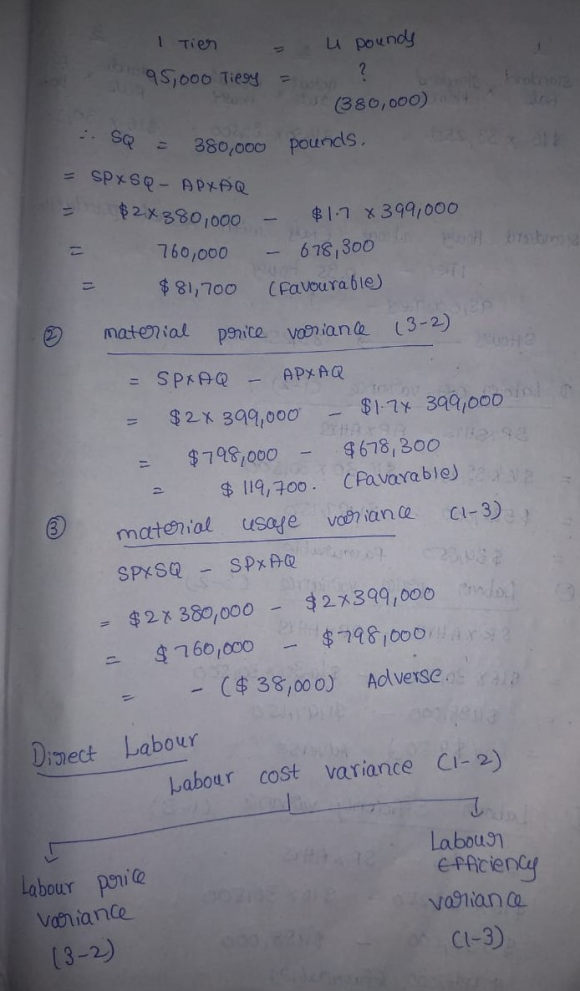 1 Tier = 4 pounds
95,000 Tiers = ?
(380,000)
∴ SQ = 380,000 pounds.
= SP×SQ - AP×AQ
= $2×380,000 - $1.7 ×399,000
= 760,000 - 678,300
= $81,700 (Favourable)
② material price variance (3-2)
= SP×AQ - AP×AQ
= $2× 399,000 - $1.7× 399,000
= $798,000 - $678,300
= $119,700. (Favarable)
③ material usage variance (1-3)
SP×SQ - SP×AQ
= $2×380,000 - $2×399,000
= $760,000 - $798,000
= - ($38,000) Adverse.
Direct Labour
Labour cost variance (1-2)
Labour price variance (3-2)
Labour Efficiency variance (1-3)